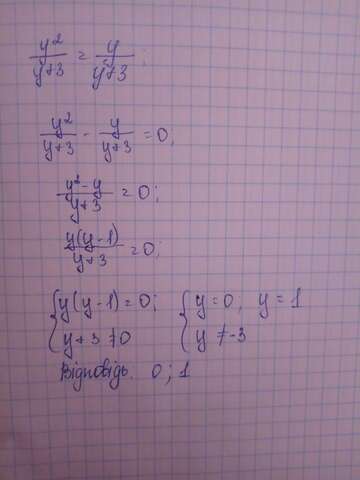 y²/(y+3) = y/(y+3);
y²/(y+3) - y/(y+3) = 0;
(y²-y)/(y+3) = 0;
y(y-1)/(y+3) = 0;
{y(y-1)=0; {y=0; y=1
{y+3≠0 {y≠-3
Відповідь. 0; 1